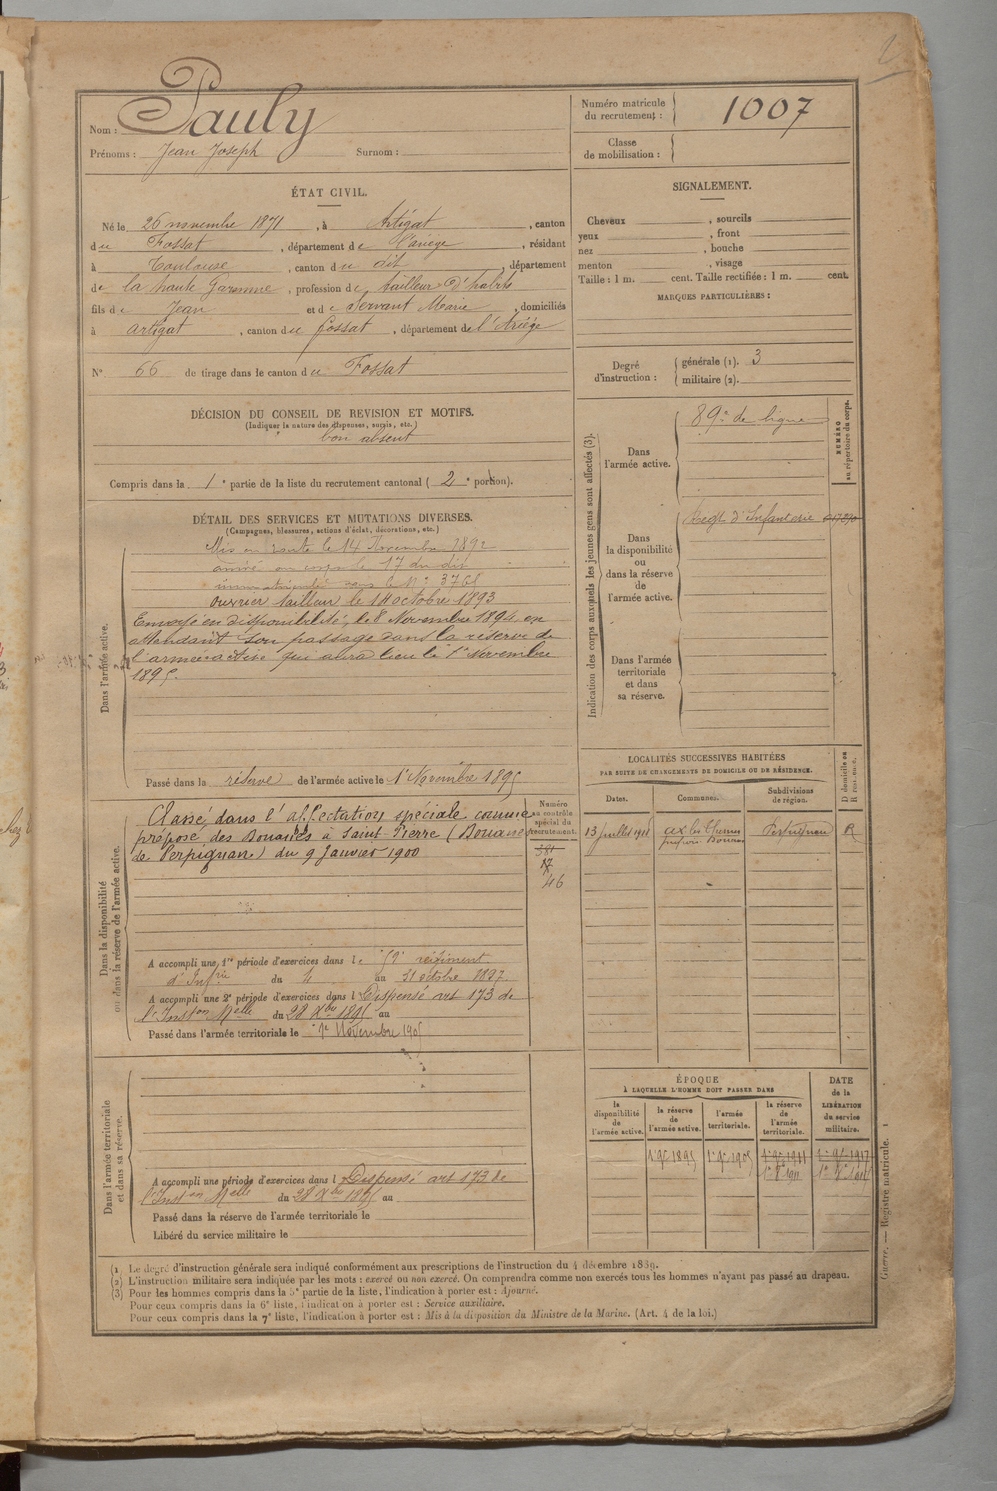 2
Nom : Pauly
Prénoms : Jean Joseph Surnom :
Numéro matricule du recrutement : 1007
Classe de mobilisation :
ÉTAT CIVIL.
Né le 26 novembre 1871, à Artigat, canton
du Fossat, département de l'ariège, résidant
à Toulouse, canton du dit, département
de la haute Garonne, profession de tailleur d'habits
fils de Jean et de Servant Marie, domiciliés
à artigat, canton du fossat, département de l'Ariège
N° 66 de tirage dans le canton du Fossat
SIGNALEMENT.
Cheveux , sourcils
yeux , front
nez , bouche
menton , visage
Taille : 1 m. cent. Taille rectifiée : 1 m. cent.
MARQUES PARTICULIÈRES :
Degré d'instruction : générale (1). 3
militaire (2).
DÉCISION DU CONSEIL DE REVISION ET MOTIFS.
(Indiquer la nature des dispenses, sursis, etc.)
bon absent
Compris dans la 1e partie de la liste du recrutement cantonal (2e portion).
DÉTAIL DES SERVICES ET MUTATIONS DIVERSES.
(Campagnes, blessures, actions d'éclat, décorations, etc.)
Dans l'armée active.
Mis en route le 14 Novembre 1892
arrivé au corps le 17 du dit
immatriculé sous le N° 3765
ouvrier tailleur le 14 octobre 1893
Envoyé en disponibilité, le 8 Novembre 1894, en
attendant son passage dans la réserve de
l'armée active qui aura lieu le 1er Novembre
1895.
Passé dans la réserve de l'armée active le 1er Novembre 1895
Indication des corps auxquels les jeunes gens sont affectés (3).
NUMÉRO au répertoire du corps.
Dans l'armée active.
89e de ligne
Dans la disponibilité ou dans la réserve de l'armée active.
Regt d'Infanterie
Dans l'armée territoriale et dans sa réserve.
Dans la disponibilité ou dans la réserve de l'armée active.
Numéro au contrôle spécial du recrutement.
Classé dans l'affectation spéciale comme
préposé des Douanes à Saint-Pierre (Douanes
de Perpignan) du 9 Janvier 1900
581
17
46
A accompli une 1re période d'exercices dans le régiment
d'Infrie du 4 au 31 octobre 1897
A accompli une 2e période d'exercices dans l Dispensé art 173 de
l'Inston Melle du 28 Xbre 1895 au
Passé dans l'armée territoriale le 1er Novembre 1905
LOCALITÉS SUCCESSIVES HABITÉES
PAR SUITE DE CHANGEMENTS DE DOMICILE OU DE RÉSIDENCE.
Dates. Communes. Subdivisions de région. D domicile ou R résidence.
13 juillet Perpignan R
ÉPOQUE
À LAQUELLE L'HOMME DOIT PASSER DANS
la disponibilité de l'armée active.
la réserve de l'armée active.
l'armée territoriale.
la réserve de l'armée territoriale.
DATE de la LIBÉRATION du service militaire.
1er 9bre 1895 1er 9bre 1905 1er 9bre 1911 1er 9bre 1917
Dans l'armée territoriale et dans sa réserve.
A accompli une période d'exercices dans l Dispensé art 173 de
l'Inston Melle du 28 Xbre 1895 au
Passé dans la réserve de l'armée territoriale le
Libéré du service militaire le
Guerre. — Registre matricule. 1
(1) Le degré d'instruction générale sera indiqué conformément aux prescriptions de l'instruction du 4 décembre 1889.
(2) L'instruction militaire sera indiquée par les mots : exercé ou non exercé. On comprendra comme non exercés tous les hommes n'ayant pas passé au drapeau.
(3) Pour les hommes compris dans la 5e partie de la liste, l'indication à porter est : Ajourné.
Pour ceux compris dans la 6e liste, l'indication à porter est : Service auxiliaire.
Pour ceux compris dans la 7e liste, l'indication à porter est : Mis à la disposition du Ministre de la Marine. (Art. 4 de la loi.)